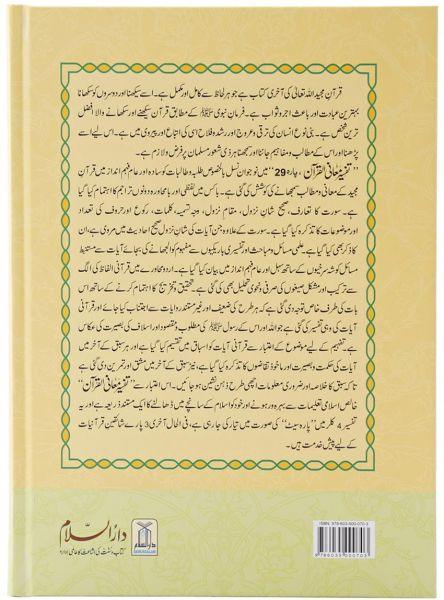 قرآن مجید اللہ تعالیٰ کی آخری کتاب ہے جو ہر لحاظ سے کامل اور مکمل ہے۔ اسے سیکھنا اور دوسروں کو سکھانا
بہترین عبادت اور باعث اجر و ثواب ہے۔ فرمان نبوی ﷺ کے مطابق قرآن سیکھنے اور سکھانے والا افضل
ترین شخص ہے۔ بنی نوع انسان کی ترقی و عروج اور رشد و فلاح اسی کی اتباع اور پیروی میں ہے۔ اس لیے اسے
پڑھنا اور اس کے مطالب و مفاہیم جاننا اور سمجھنا ہر ذی شعور مسلمان پر فرض و لازم ہے۔
”تفسیر معانی القرآن، پارہ 29“ میں نوجوان نسل بالخصوص طلبہ و طالبات کو سادہ اور عام فہم انداز میں قرآن
مجید کے معانی و مطالب سمجھانے کی کوشش کی گئی ہے۔ جس میں لفظی اور بامحاورہ دونوں تراجم کا اہتمام کیا گیا
ہے۔ سورت کا تعارف، صحیح شان نزول، مقام نزول، وجہ تسمیہ، کلمات، رکوع اور حروف کی تعداد
اور موضوعات کا تذکرہ کیا گیا ہے۔ سورت کے علاوہ جن آیات کی شان نزول صحیح احادیث میں مروی ہے، ان
کا ذکر بھی کیا گیا ہے۔ علمی مسائل و مباحث اور تفسیری باریکیوں سے مفہوم کو الجھانے کی بجائے آیات سے مستنبط
مسائل کو شہ سرخیوں کے ساتھ سہل اور عام فہم انداز میں بیان کیا گیا ہے۔ اردو محاورے میں قرآنی الفاظ کی الگ
سے ترکیب اور مشکل صیغوں کی صرفی و نحوی تحلیل بھی کی گئی ہے۔ تحقیق و تخریج کا اہتمام کرنے کے ساتھ اس
بات کی طرف خاص توجہ دی گئی ہے کہ ہر طرح کی ضعیف اور غیر مستند روایات سے اجتناب کیا جائے اور قرآنی
آیات کی وہی تفسیر کی گئی ہے جو اللہ اور اس کے رسول ﷺ کی مطلوب و مقصود اور اسلاف کی بصیرت کی عکاس
ہے۔ تفہیم کے لیے موضوع کے اعتبار سے قرآنی آیات کو اسباق میں تقسیم کیا گیا ہے اور ہر سبق کے آخر میں
آیات کی حکمت و بصیرت اور ماخوذ نقاط و فوائد کا تذکرہ کیا گیا ہے، نیز سبق کے آخر میں مشق اور تمرین دی گئی ہے
تا کہ سبق کا خلاصہ اور ضروری معلومات اچھی طرح ذہن نشین ہو جائیں۔ اس اعتبار سے ”تفسیر معانی القرآن“
خالص اسلامی تعلیمات سے بہرہ ور ہونے اور خود کو اسلام کے سانچے میں ڈھالنے کا ایک مستند ذریعہ ہے اور یہ
تفسیر 4 کلر میں ”پارہ سیٹ“ کی صورت میں تیار کی جا رہی ہے، فی الحال آخری 3 پارے شائقین قرآنیات
کے لیے پیش خدمت ہیں۔
دارالسلام
کتاب و سنت کی اشاعت کا عالمی ادارہ
دارالسلام
DARUSSALAM
ISBN: 978-603-500-070-3
9 786035 000703